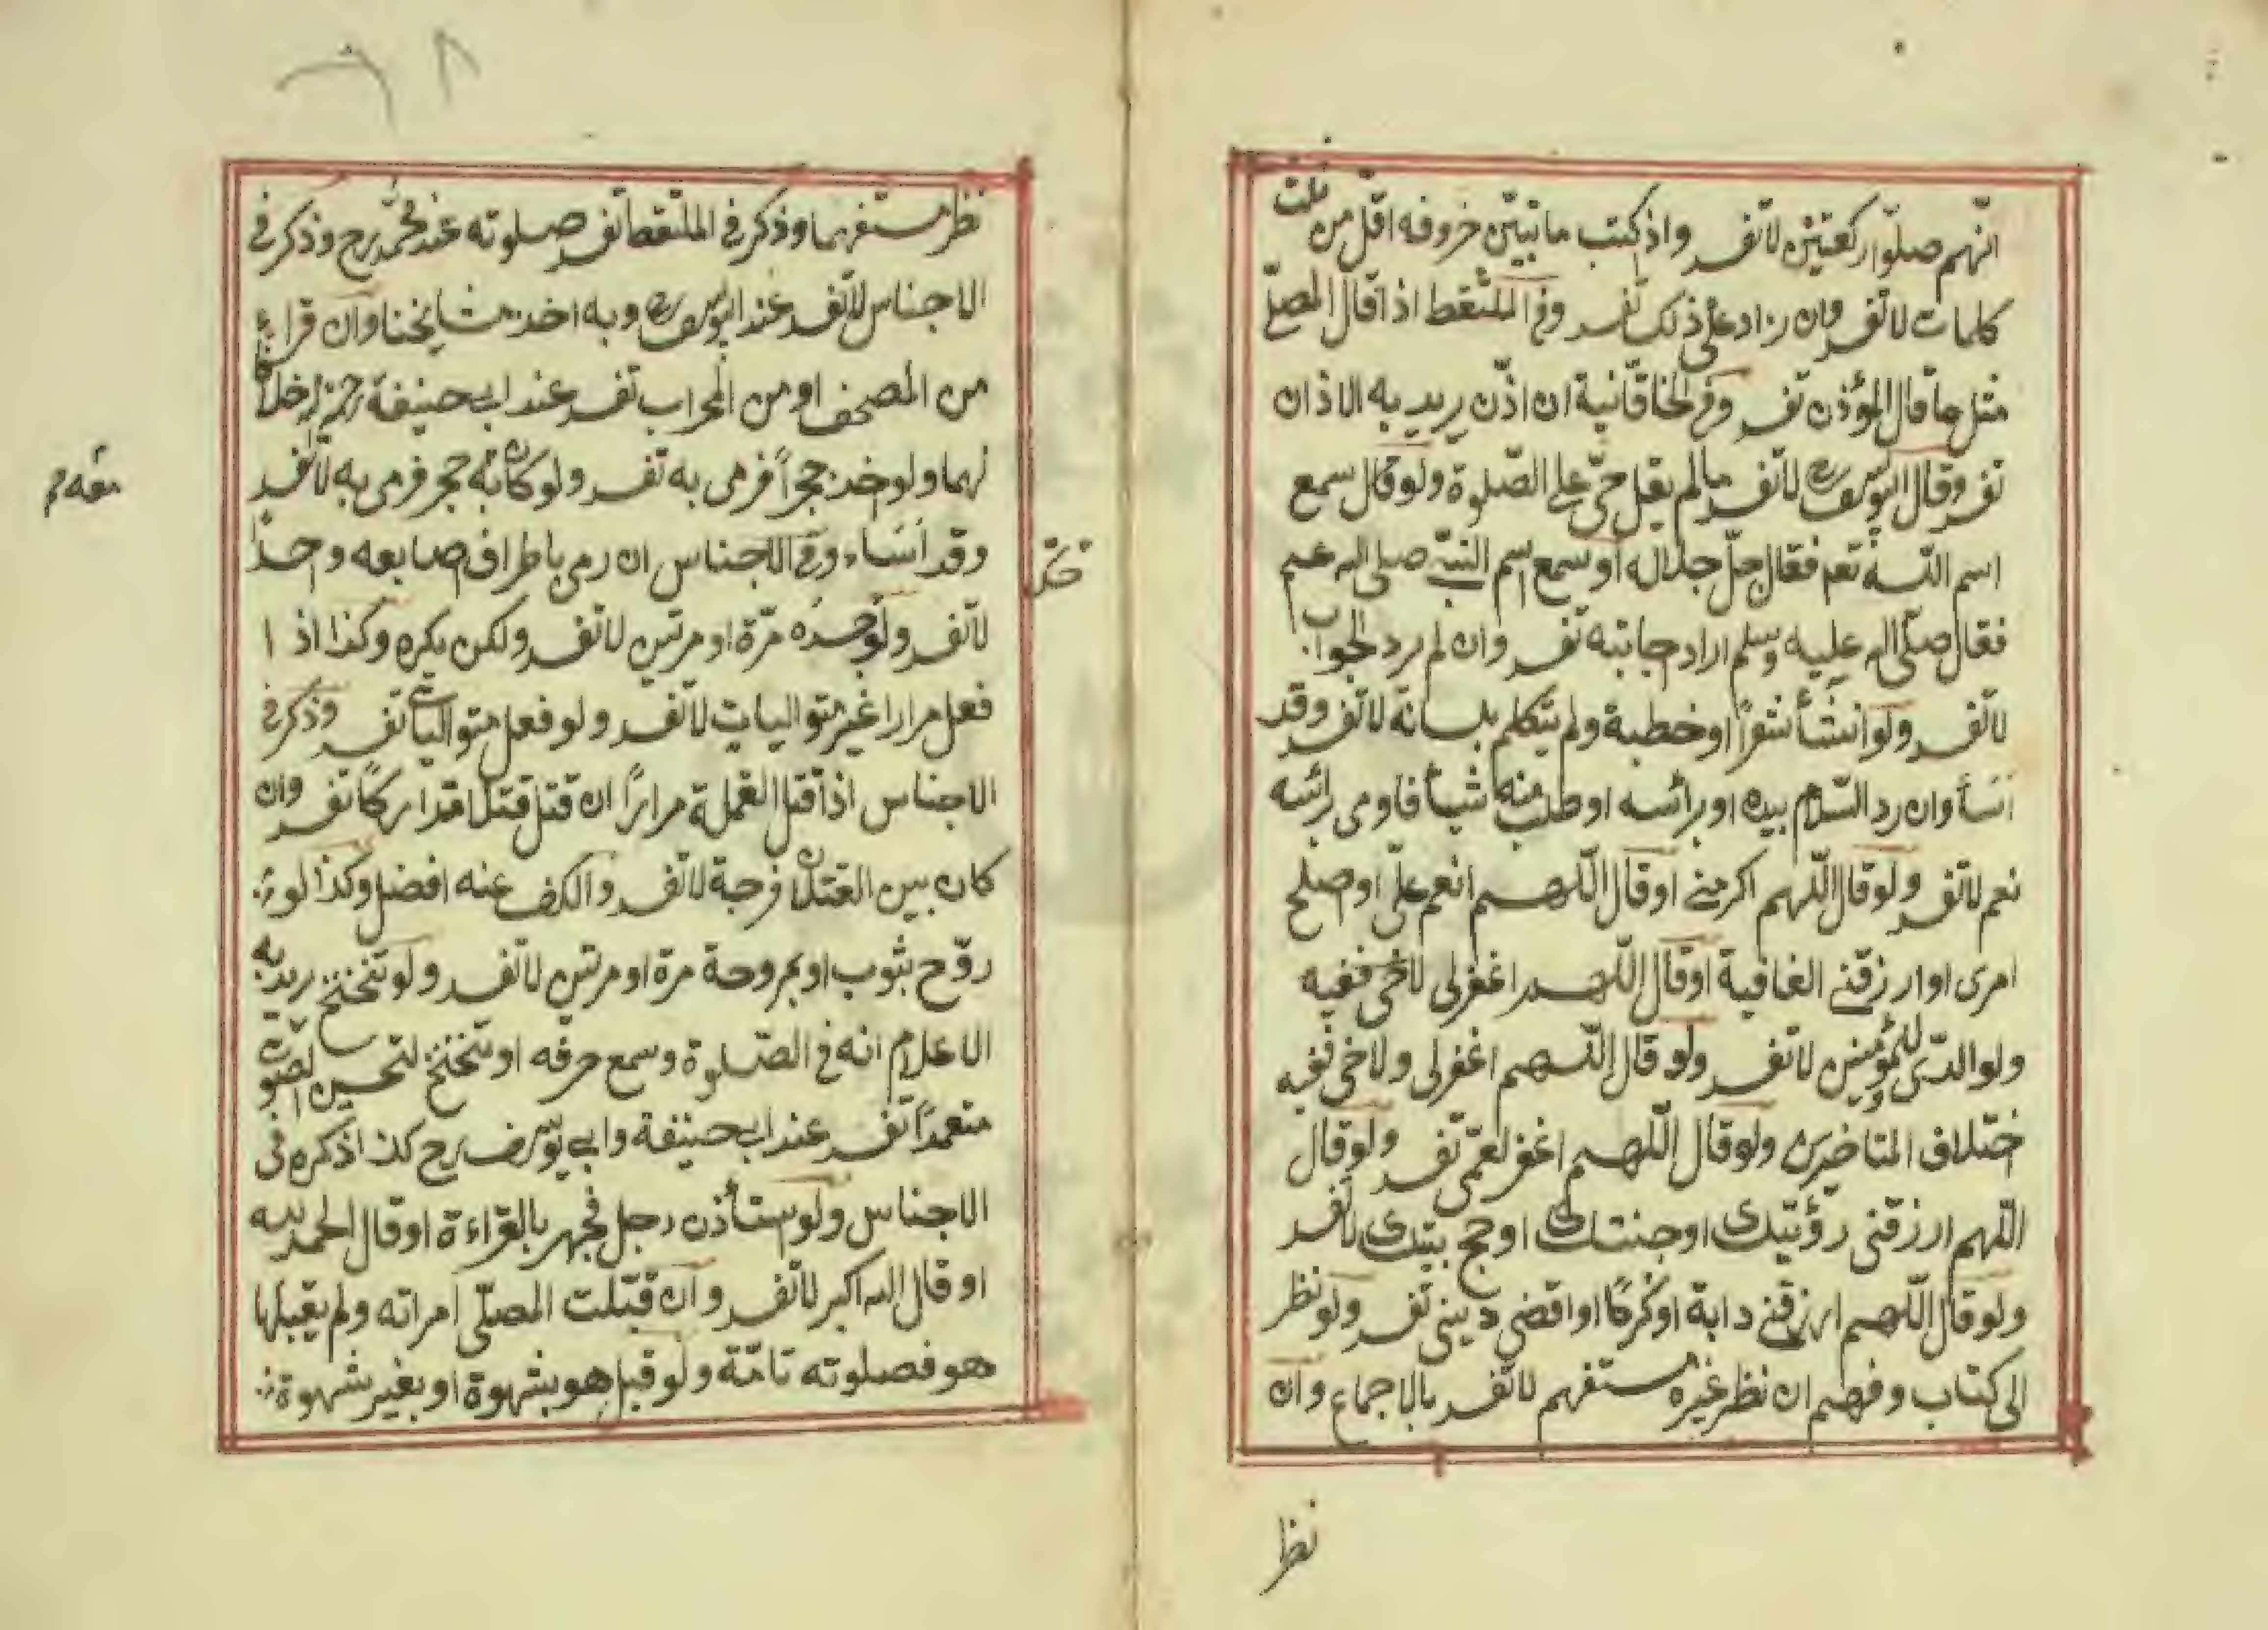 انّهم صلّوا ركعتين لا تفسد واذ كتب ما تبيّن حروفه اقلّ من ثلث
كلمات لا تفسد وان زاد على ذلك تفسد وفى الملتقط اذا قال المصلّى
مثل ما قال المؤذن تفسد وفى الخاقانية ان اذّن يريد به الاذان
تفسد وقال ابو يوسف لا تفسد ما لم يقل حىّ على الصّلوة ولو قال سمع
اسم اللّه تعم فقال جلّ جلاله او سمع اسم النبىّ صلى اله عم
فقال صلّى اله عليه وسلم اراد جابته تفسد وان لم يرد الجواب
لا تفسد ولو انشأ شعراً او خطبة ولم يتكلم بلسانه لا تفسد وقد
اسأ وان رد السّلام بيده او برائسه او طلب منه شيأ فاومى برائسه
نعم لا تفسد ولو قال اللّهم اكرمنى او قال اللّهم انعم علىّ او صلح
امرى او ارزقنى العافية او قال اللّهم اغفر لى لاخى ففيه
ولوالدىّ وللمؤمنين لا تفسد ولو قال اللّهم اغفر لى ولاخى ففيه
ختلاف المتاخرين ولو قال اللّهم اغفر لعمّى تفسد ولو قال
اللّهم ارزقنى رؤيتك او جنتك او حج بيتك لا تفسد
ولو قال اللّهم ارزقنى دابة او كرمًا او اقضى دينى تفسد ولو نظر
الى كتاب وفهم ان نظر غيره مستفهم لا تفسد بالاجماع وان
نظر
نظر مستفهما وذكر فى الملتقط تفسد صلوته عند محمّد رح وذكر فى
الاجناس لا تفسد عند ابو يوسف وبه اخذ مشايخنا وان قراء
من المصحف او من المحراب تفسد عند ابى حنيفة رحمه اله خلافا
لهما ولو خذ حجراً فرمى به تفسد ولو كان به حجر فرمى به لا تفسد
معه م
وقد اسَاء وفى الاجناس ان رمى باطراف صابعه وحدًا
لا تفسد ولو حسده مرّة او مرتين لا تفسد ولكن يكره وكذا اذا
فعل مرارا غير متواليات لا تفسد ولو فعل متواليات تفسد وذكر فى
الاجناس اذا قتل القملة مراراً ان قتل قتلا متداركاً تفسد وان
كان بين القتلان فرجة لا تفسد والكف عنه افضل وكذا لو
روّح بثوب او بمروحة مرة او مرتين لا تفسد ولو تنحنح يريد به
الاعلام انه فى الصّلوة وسمع حرفه او تنحنح لتحسين الصّوت
متعمداً تفسد عند ابى حنيفة وابى يوسف رح كذا ذكره فى
الاجناس ولو ستأذن رجل فجهر بالقراءة او قال الحمد لله
او قال اله اكبر لا تفسد وان قبّلت المصلّى امراته ولم يقبلها
هو فصلوته تامّة ولو قبل هو بشهوة او بغير شهوة